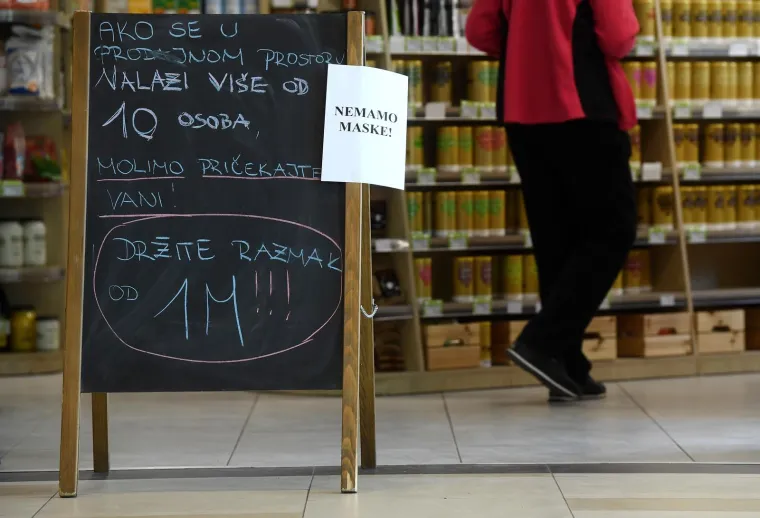 AKO SE U
PRODAJNOM PROSTORU
NALAZI VIŠE OD
10 OSOBA,
MOLIMO PRIČEKAJTE
VANI!
DRŽITE RAZMAK
OD 1M!!!
NEMAMO
MASKE!